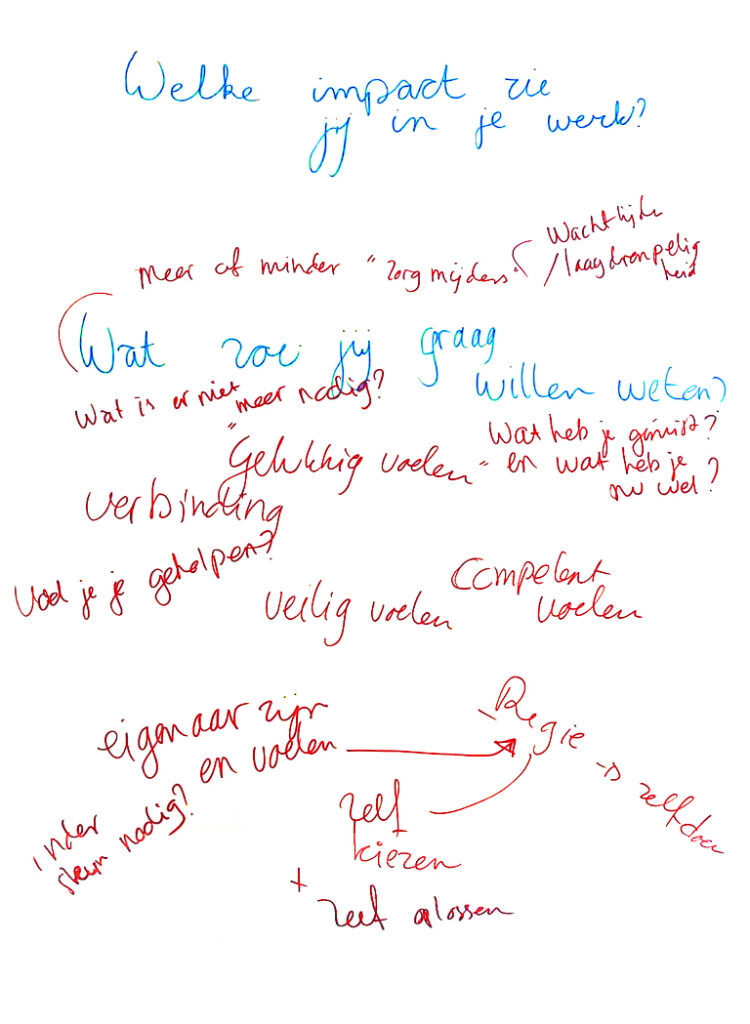 Welke impact zie
jij in je werk?
Wachtlijde
meer of minder "zorgmijders" ( /laagdrempelig
heid
Wat zou jij graag
willen weten?
Wat is er niet meer nodig?
"Gelukkig voelen"
Wat heb je gemist?
en wat heb je
nu wel?
verbinding
Voel je je geholpen?
veilig voelen
Competent
voelen
eigenaar zijn
en voelen
Regie → zelf doen
inder
steun nodig?
zelf
kiezen
+
zelf oplossen